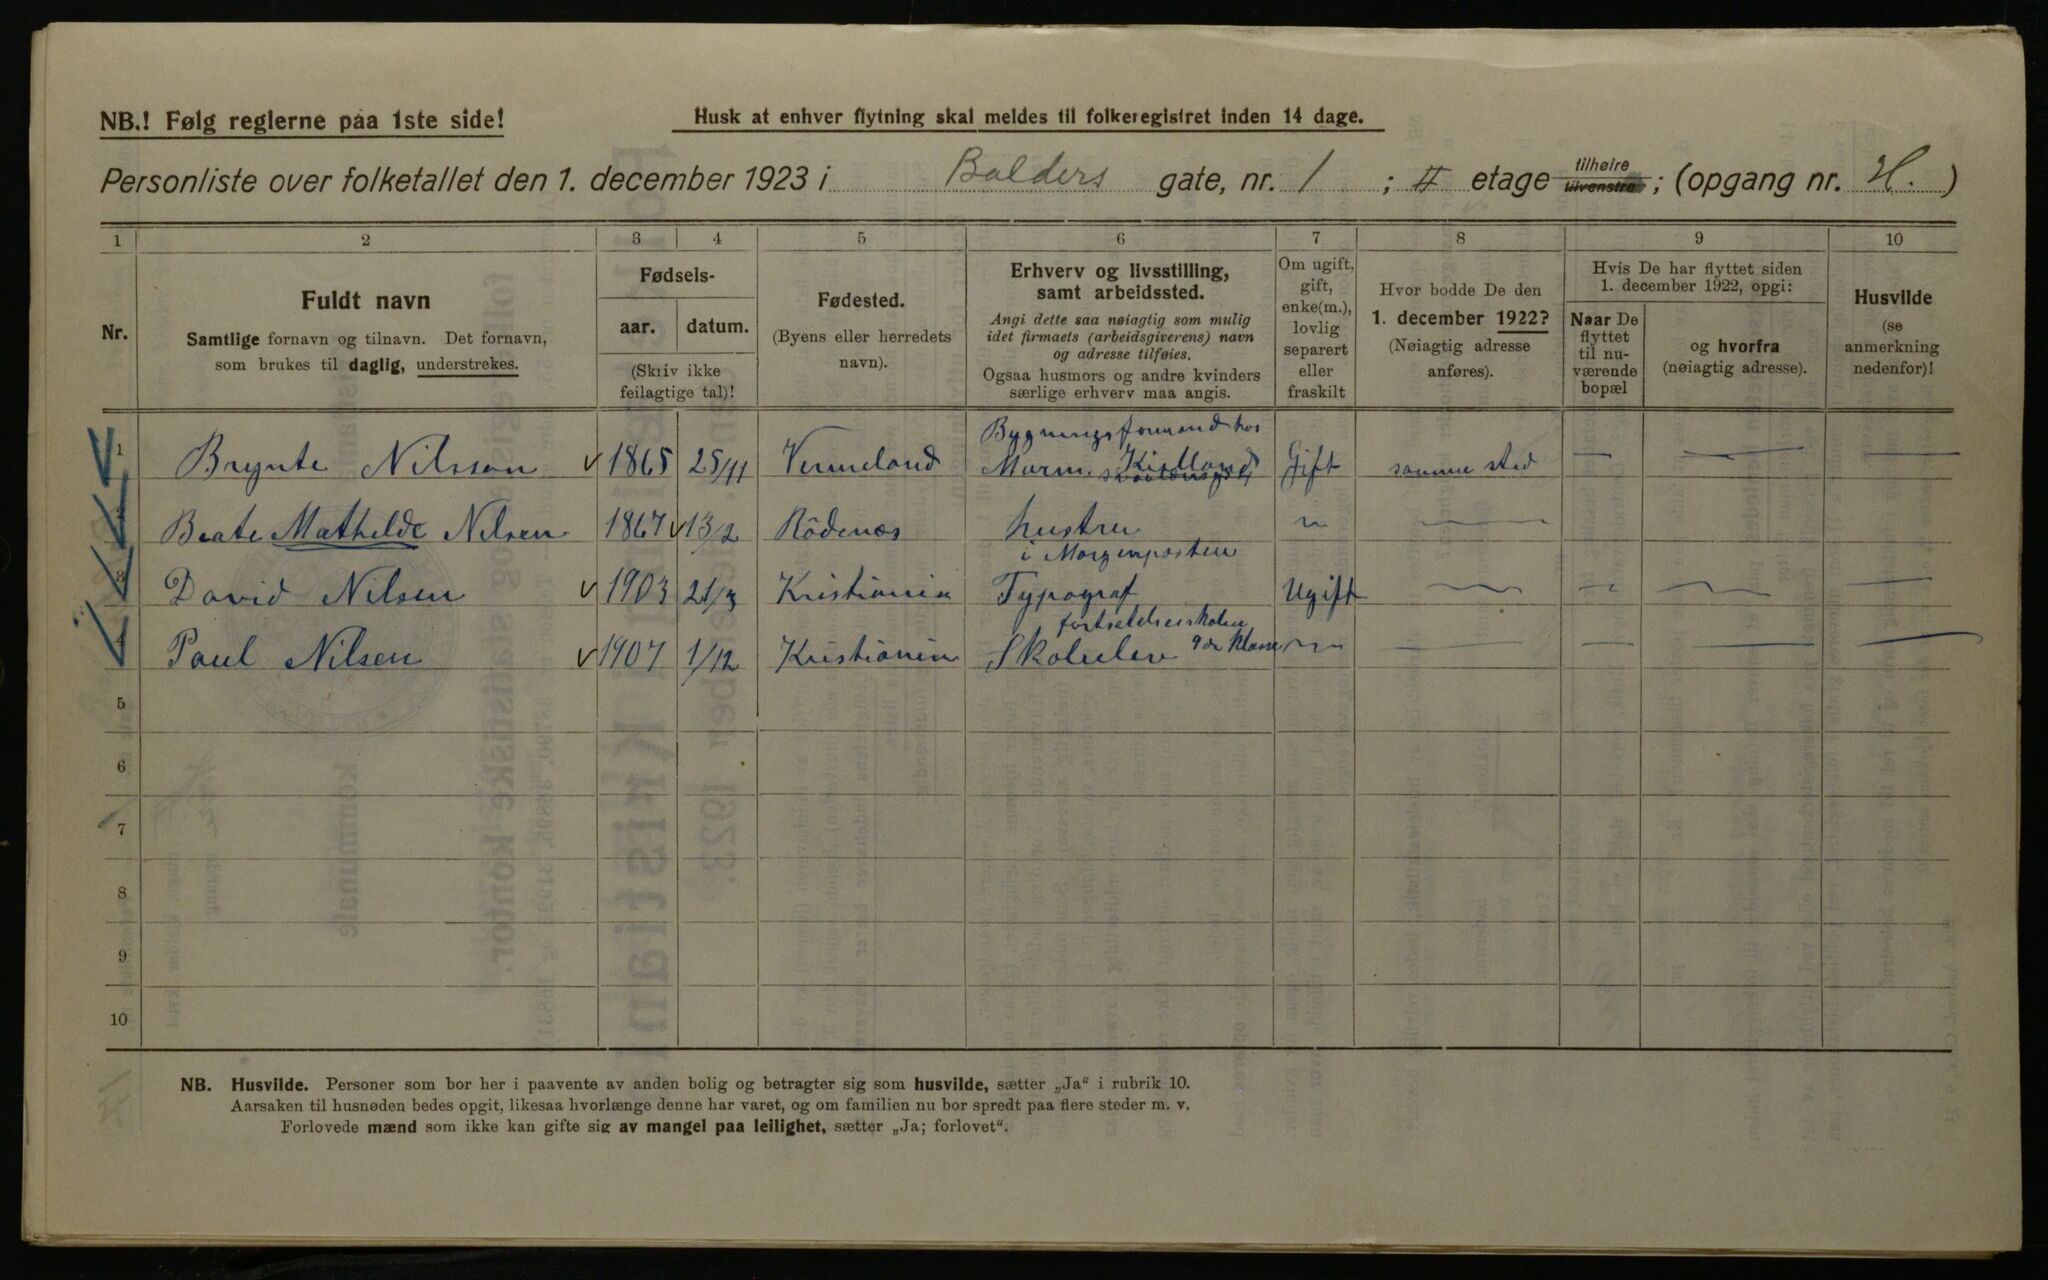 NB.! Følg reglerne paa 1ste side!
Husk at enhver flytning skal meldes til folkeregistret inden 14 dage.
Personliste over folketallet den 1. december 1923 i Balders gate, nr. 1 ; II etage tilhøire tilvenstre ; (opgang nr. H. )
1 2 3 4 5 6 7 8 9 10
Nr.
Fuldt navn
Samtlige fornavn og tilnavn. Det fornavn,
som brukes til daglig, understrekes.
Fødsels-
aar. datum.
(Skriv ikke
feilagtige tal)!
Fødested.
(Byens eller herredets
navn).
Erhverv og livsstilling,
samt arbeidssted.
Angi dette saa nøiagtig som mulig
idet firmaets (arbeidsgiverens) navn
og adresse tilføies.
Ogsaa husmors og andre kvinders
særlige erhverv maa angis.
Om ugift,
gift,
enke(m.),
lovlig
separert
eller
fraskilt
Hvor bodde De den
1. december 1922?
(Nøiagtig adresse
anføres).
Hvis De har flyttet siden
1. december 1922, opgi:
Naar De
flyttet
til nu-
værende
bopæl
og hvorfra
(nøiagtig adresse).
Husvilde
(se
anmerkning
nedenfor)!
Bygningsformand hos
1 Brynte Nilsson 1865 25/11 Vermeland Murm. Gift samme sted — — —
2 Beate Mathilde Nilsen 1867 13/2 Rödenæs hustru " —
i Morgenposten
3 David Nilsen 1903 21/3 Kristiania Typograf Ugift — — — —
fortsættelsesskolen
4 Paul Nilsen 1907 1/12 Kristiania Skoleelev 9de klasse — — — — —
5
6
7
8
9
10
NB. Husvilde. Personer som bor her i paavente av anden bolig og betragter sig som husvilde, sætter „Ja“ i rubrik 10.
Aarsaken til husnøden bedes opgit, likesaa hvorlænge denne har varet, og om familien nu bor spredt paa flere steder m. v.
Forlovede mænd som ikke kan gifte sig av mangel paa leilighet, sætter „Ja; forlovet“.